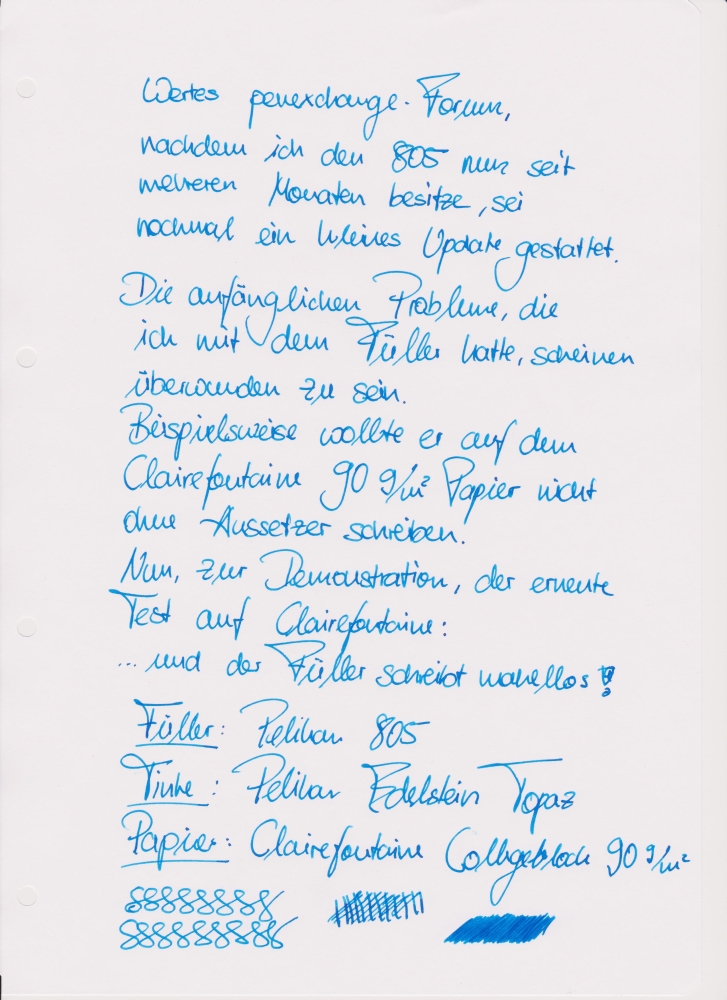 Wertes penexchange-Forum,
nachdem ich den 805 nun seit
mehreren Monaten besitze, sei
nochmal ein kleines Update gestattet.
Die anfänglichen Probleme, die
ich mit dem Füller hatte, scheinen
überwunden zu sein.
Beispielsweise wollte er auf dem
Clairefontaine 90 g/m² Papier nicht
ohne Aussetzer schreiben.
Nun, zur Demonstration, der erneute
Test auf Clairefontaine:
... und der Füller schreibt makellos!
Füller: Pelikan 805
Tinte: Pelikan Edelstein Topaz
Papier: Clairefontaine Collegeblock 90 g/m²
888888888
8888888888